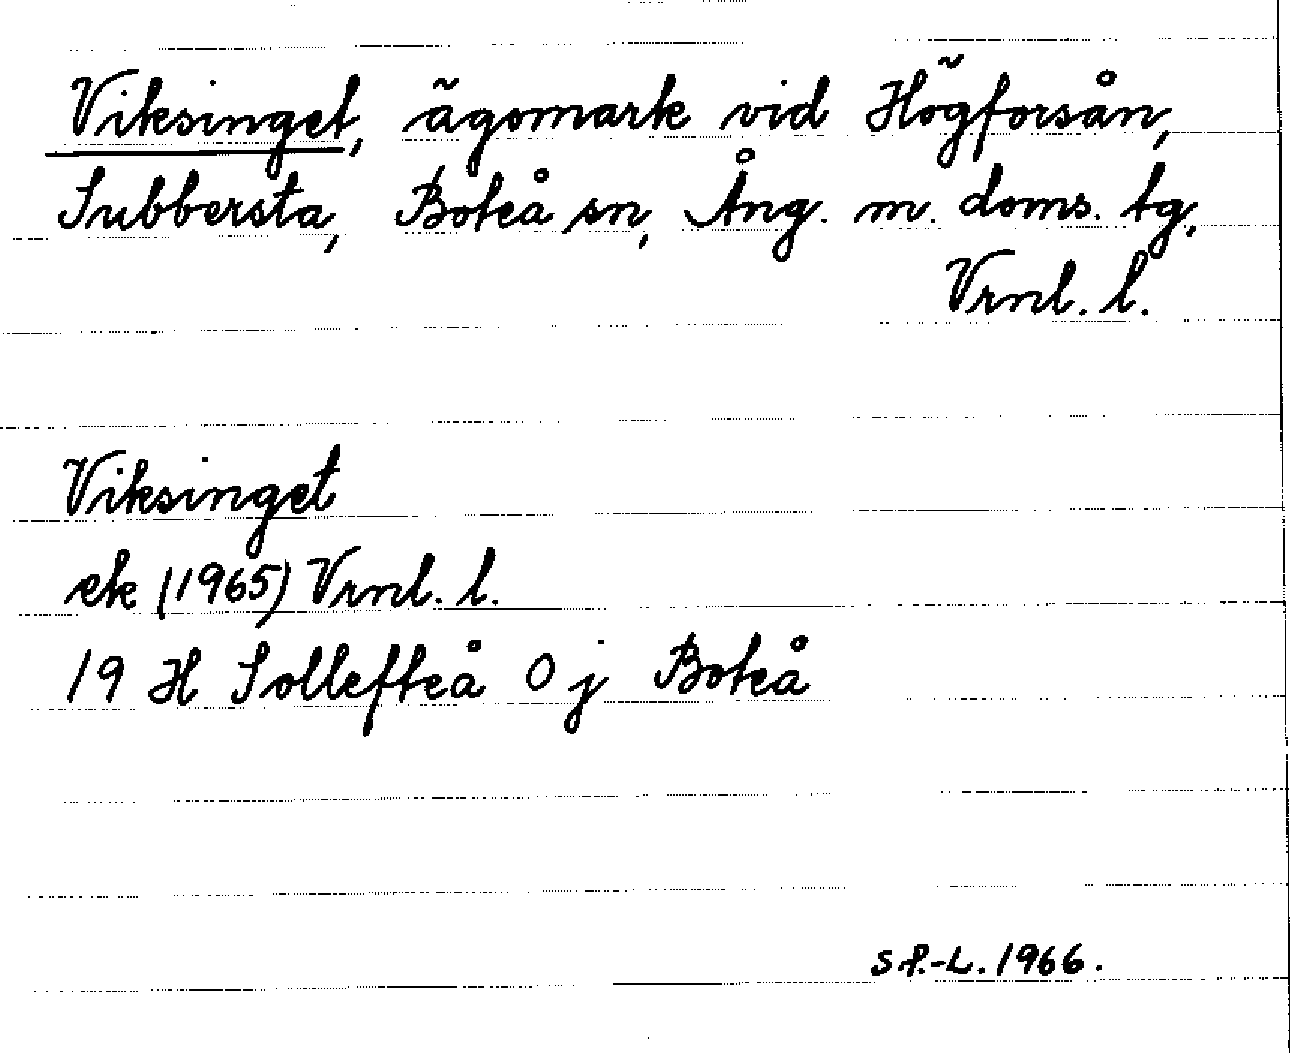 Viksinget, ägomark vid Högforsån,
Subbersta, Boteå sn, Ång. m. doms. tg,
Vrnl. l.
Viksinget
ek (1965) Vrnl. l.
19 H Sollefteå 0 j Boteå
S P.-L. 1966.